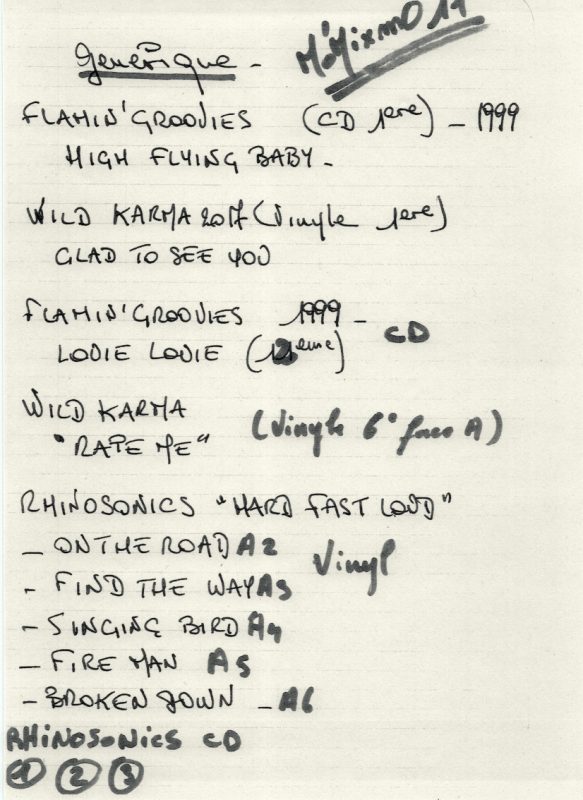 Generique - M'Mixm0 19
FLAMIN' GROOVIES (CD 1ere) - 1999
HIGH FLYING BABY -
WILD KARMA 2017 (Vinyle 1ere)
GLAD TO SEE YOU
FLAMIN' GROOVIES 1999 -
LOUIE LOUIE (11eme) CD
WILD KARMA
"RAPE ME" (Vinyle 6° face A)
RHINOSONICS "HARD FAST LOUD"
- ON THE ROAD A2 Vinyl
- FIND THE WAY A3
- SINGING BIRD A4
- FIRE MAN A5
- BROKEN DOWN - A6
RHINOSONICS CD
1 2 3